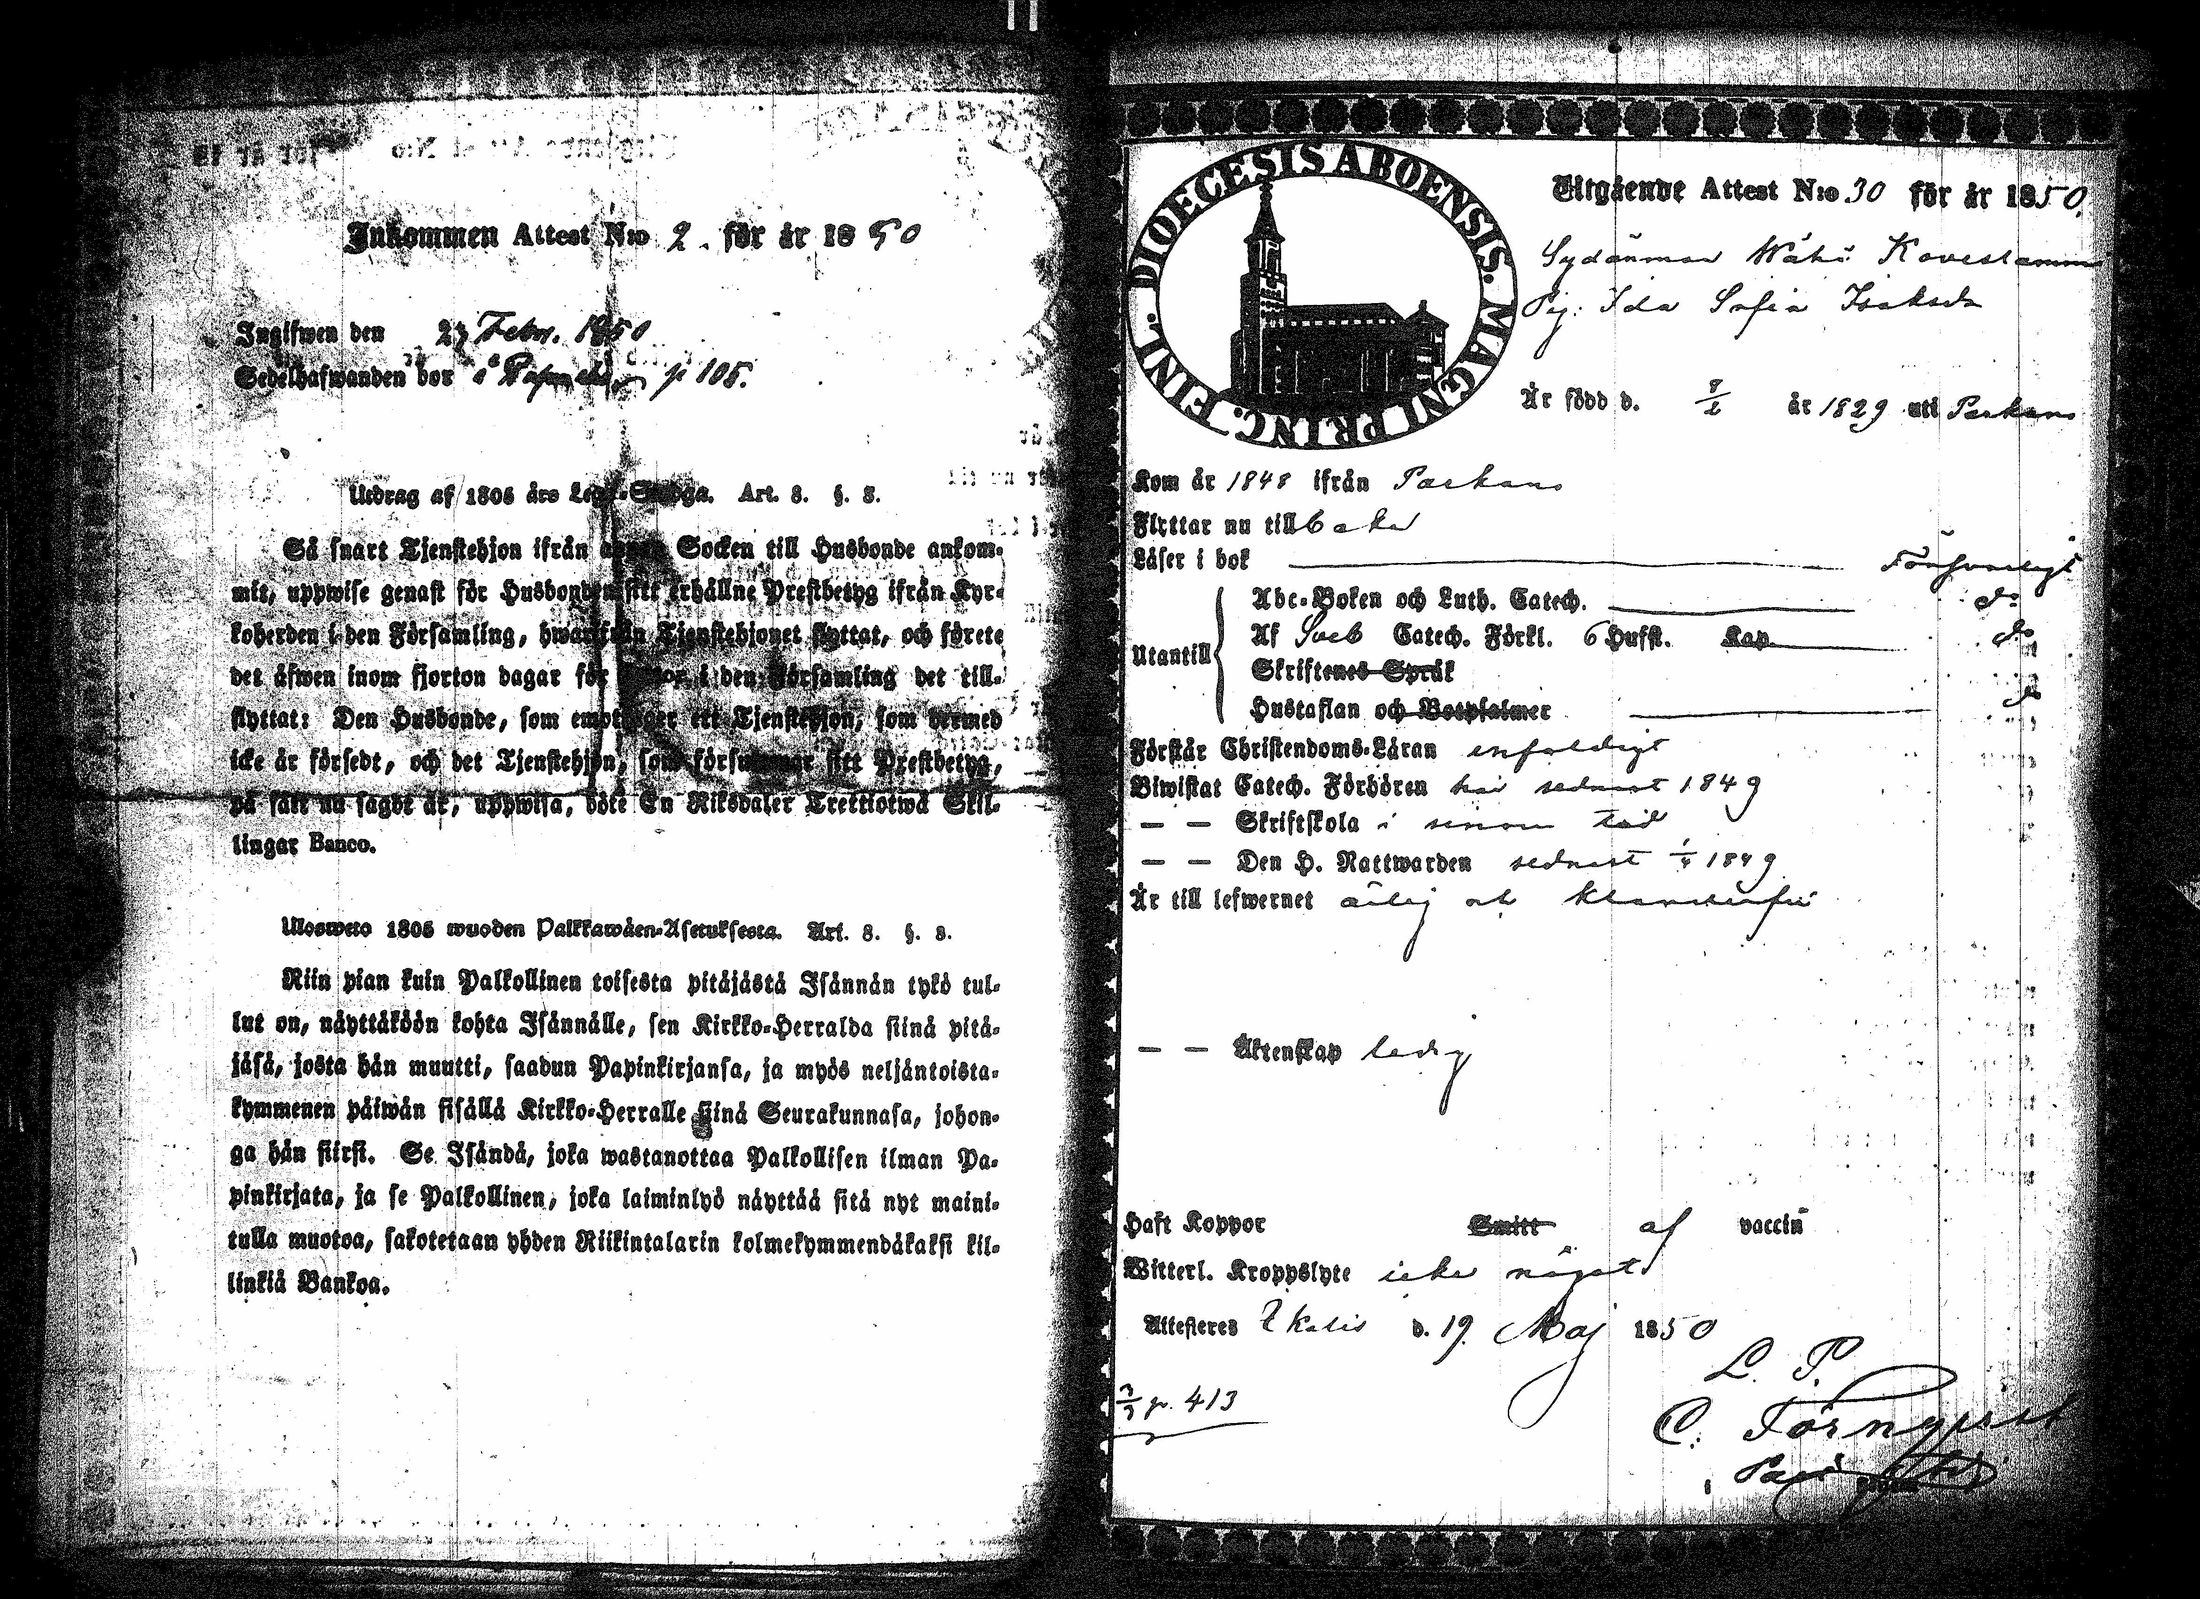 Inkommen Attest N:o 2. för år 1850
Ingifwen den 27 Febr. 1850
Sedelhafwanden bor i p 105.
Utdrag af 1805 års Lego-Stadga. Art. 8. §. 8.
Så snart Tjenstehjon ifrån annan Socken till Husbonde ankom-
mit, uppwise genast för Husbonden sitt erhållne Prestbetyg ifrån Kyr-
koherden i den Församling, hwarifrån Tjenstehjonet flyttat, och förete
det äfwen inom fjorton dagar för Pastor i den Församling det till-
flyttat: Den Husbonde, som emottager ett Tjenstehjon, som dermed
icke är försedt, och det Tjenstehjon, som försummar sitt Prestbetyg,
på sätt nu sagdt är, uppwisa, böte En Riksdaler Trettiotwå Skil-
lingar Banco.
Ulosweto 1805 wuoden Palkkawäen-Asetuksesta. Art. 8. §. 8.
Niin pian kuin Palkollinen toisesta pitäjästä Isännän tykö tul-
lut on, näyttäköön kohta Isännälle, sen Kirkko-Herralda siinä pitä-
jäsä, josta hän muutti, saadun Papinkirjansa, ja myös neljäntoista-
kymmenen päiwän sisällä Kirkko-Herralle siinä Seurakunnasa, johon-
ga hän siirsi. Se Isändä, joka wastanottaa Palkollisen ilman Pa-
pinkirjata, ja se Palkollinen, joka laiminlyö näyttää sitä nyt maini-
tulla muotoa, sakotetaan yhden Riikintalarin kolmekymmendäkaksi kil-
linkiä Bankoa.
DIOECESIS ABOENSIS. MAGNI PRINC. FINL.
Utgående Attest N:o 30 för år 1850.
Sydänmaa Wähä Kovestamma
Pig: Ida Sofia Isaksdr
Är född d. år 1829 uti Parkano
Kom år 1848 ifrån Parkano
Flyttar nu tillbaka
Läser i bok Försvarligt
Abc-Boken och Luth. Catech. do
Utantill Af Sveb Catech. Förkl. 6 Hufst. Kap. do
Skriftenes Språk
Hustaflan och Botpsalmer do
Förstår Christendoms-Läran enfaldigt
Biwistat Catech. Förhören här sednast 1849
— — Skriftskola i sinom tid
— — Den H. Nattwarden sednast 1/4 1849
Är till lefwernet ärlig och klanderfri
— — Äktenskap ledig
Haft Koppor Smitt af vaccin
Witterl. Kroppslyte icke något
Attesteres Ikalis d. 19. Maj 1850
p. 413
L. P.
C. Törnqvist